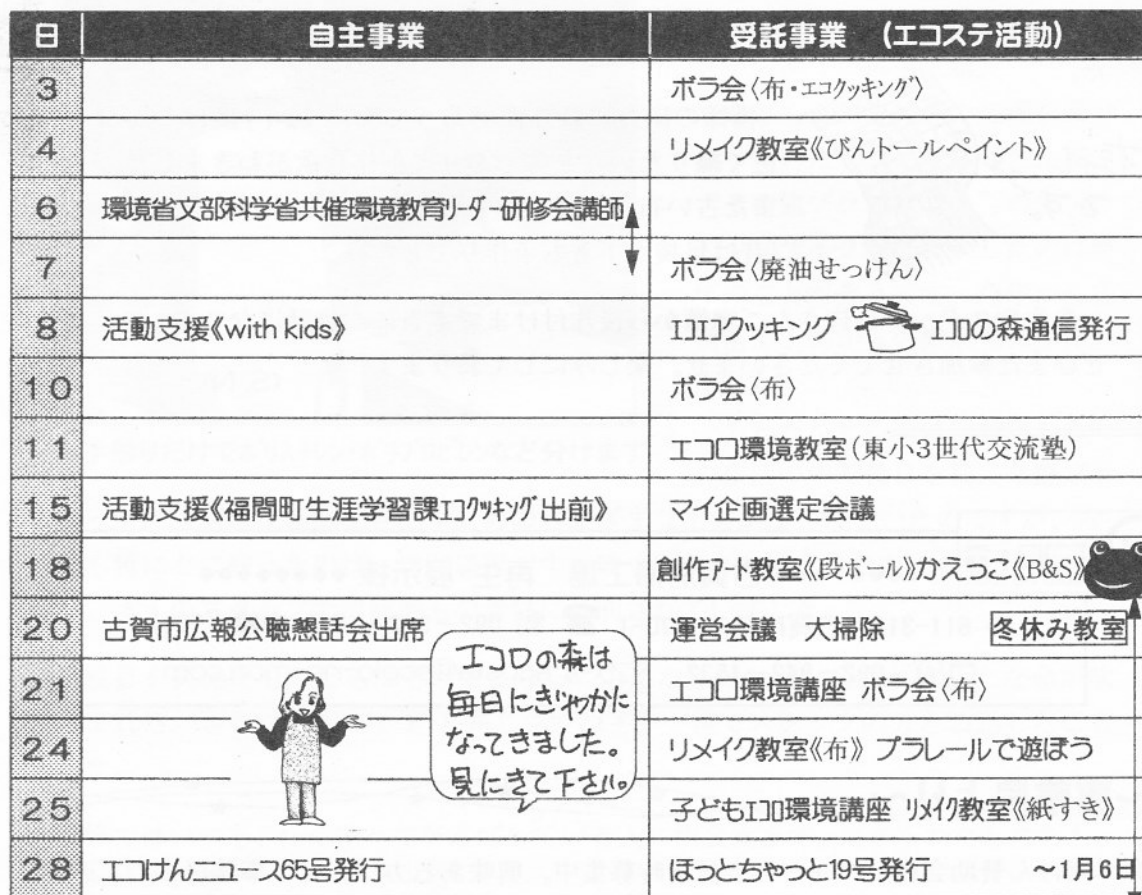 日 自主事業 受託事業 (エコステ活動)
3 ボラ会〈布・エコクッキング〉
4 リメイク教室《びんトールペイント》
6 環境省文部科学省共催環境教育リーダー研修会講師
7 ボラ会〈廃油せっけん〉
8 活動支援《with kids》 エコロコクッキング エコロの森通信発行
10 ボラ会〈布〉
11 エコロ環境教室(東小3世代交流塾)
15 活動支援《福間町生涯学習課エコクッキング出前》 マイ企画選定会議
18 創作アート教室《段ボール》かえっこ《B&S》
20 古賀市広報公聴懇話会出席 運営会議 大掃除 冬休み教室
エコロの森は
毎日にぎやかに
なってきました。
見にきて下さい。
21 エコロ環境講座 ボラ会〈布〉
24 リメイク教室《布》 プラレールで遊ぼう
25 子どもエコロ環境講座 リメイク教室《紙すき》
28 エコけんニュース65号発行 ほっとちゃっと19号発行 1月6日